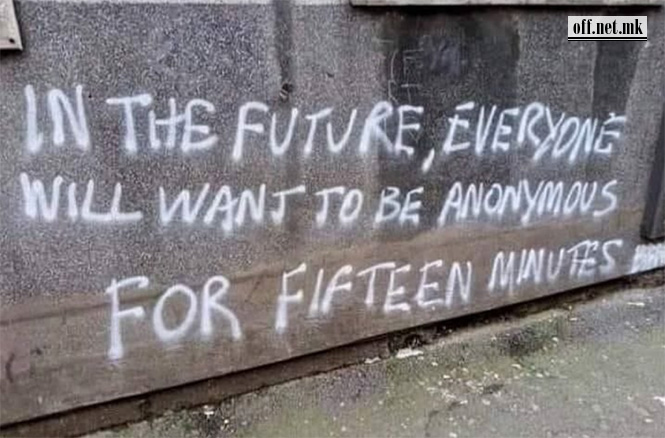 off.net.mk
IN THE FUTURE, EVERYONE
WILL WANT TO BE ANONYMOUS
FOR FIFTEEN MINUTES